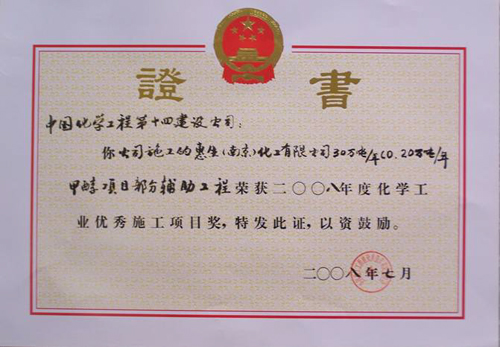 證書
中国化学工程第十四建设公司:
你公司施工的惠生(南京)化工有限公司30万吨/年CO、20万吨/年
甲醇项目部分辅助工程荣获二〇〇八年度化学工
业优秀施工项目奖,特发此证,以资鼓励。
二〇〇八年七月